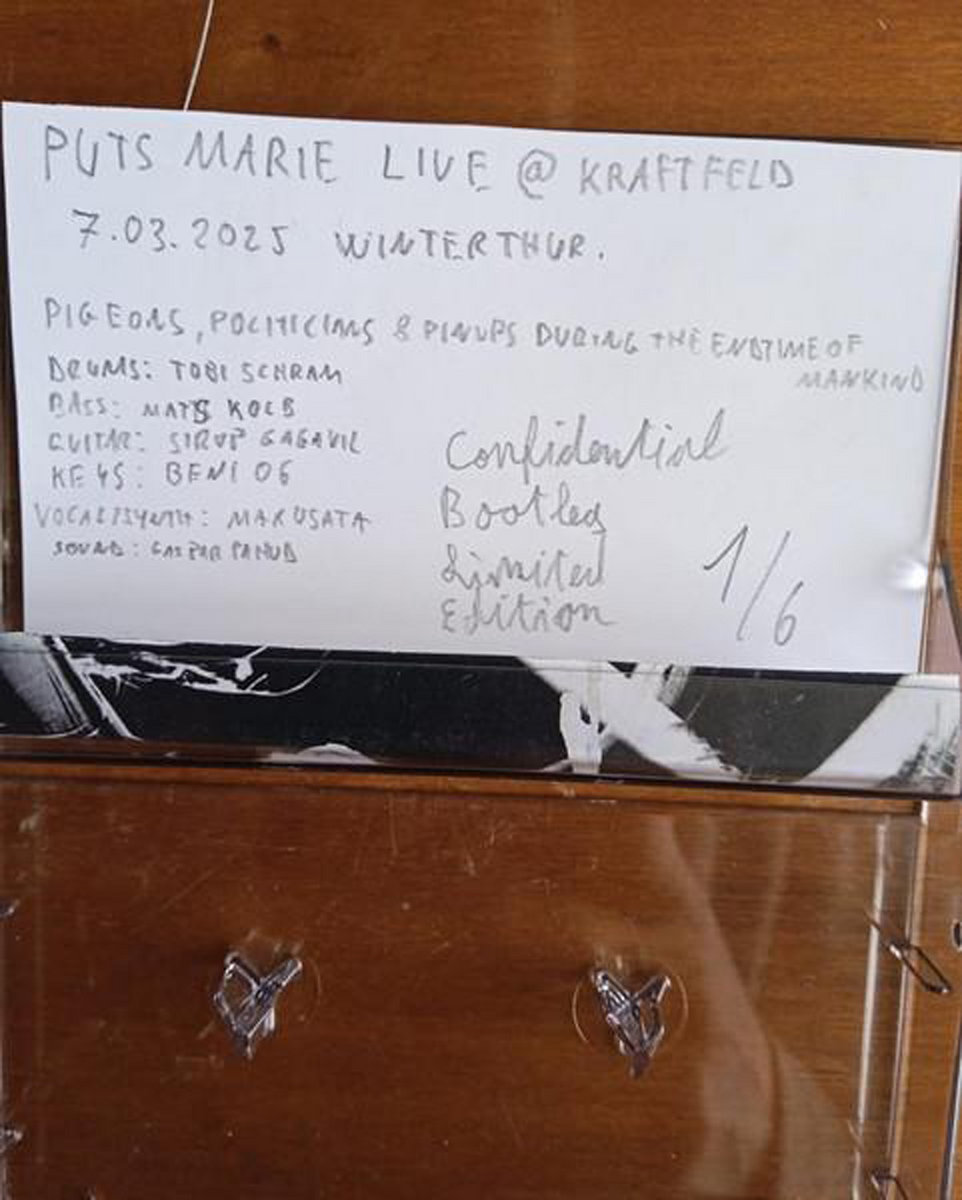 PUTS MARIE LIVE @ KRAFTFELD
7.03.2025 WINTERTHUR.
PIGEONS, POLITICIANS & PINUPS DURING THE ENDTIME OF
MANKIND
DRUMS: TOBI SCHRAM
BASS: MATS KOLB
GUITAR: SIRUP GAGAVIL
KEYS: BENI 06
VOCALS/SYNTH: MAX USATA
SOUND:
Confidential
Bootleg
Limited
Edition
1/6